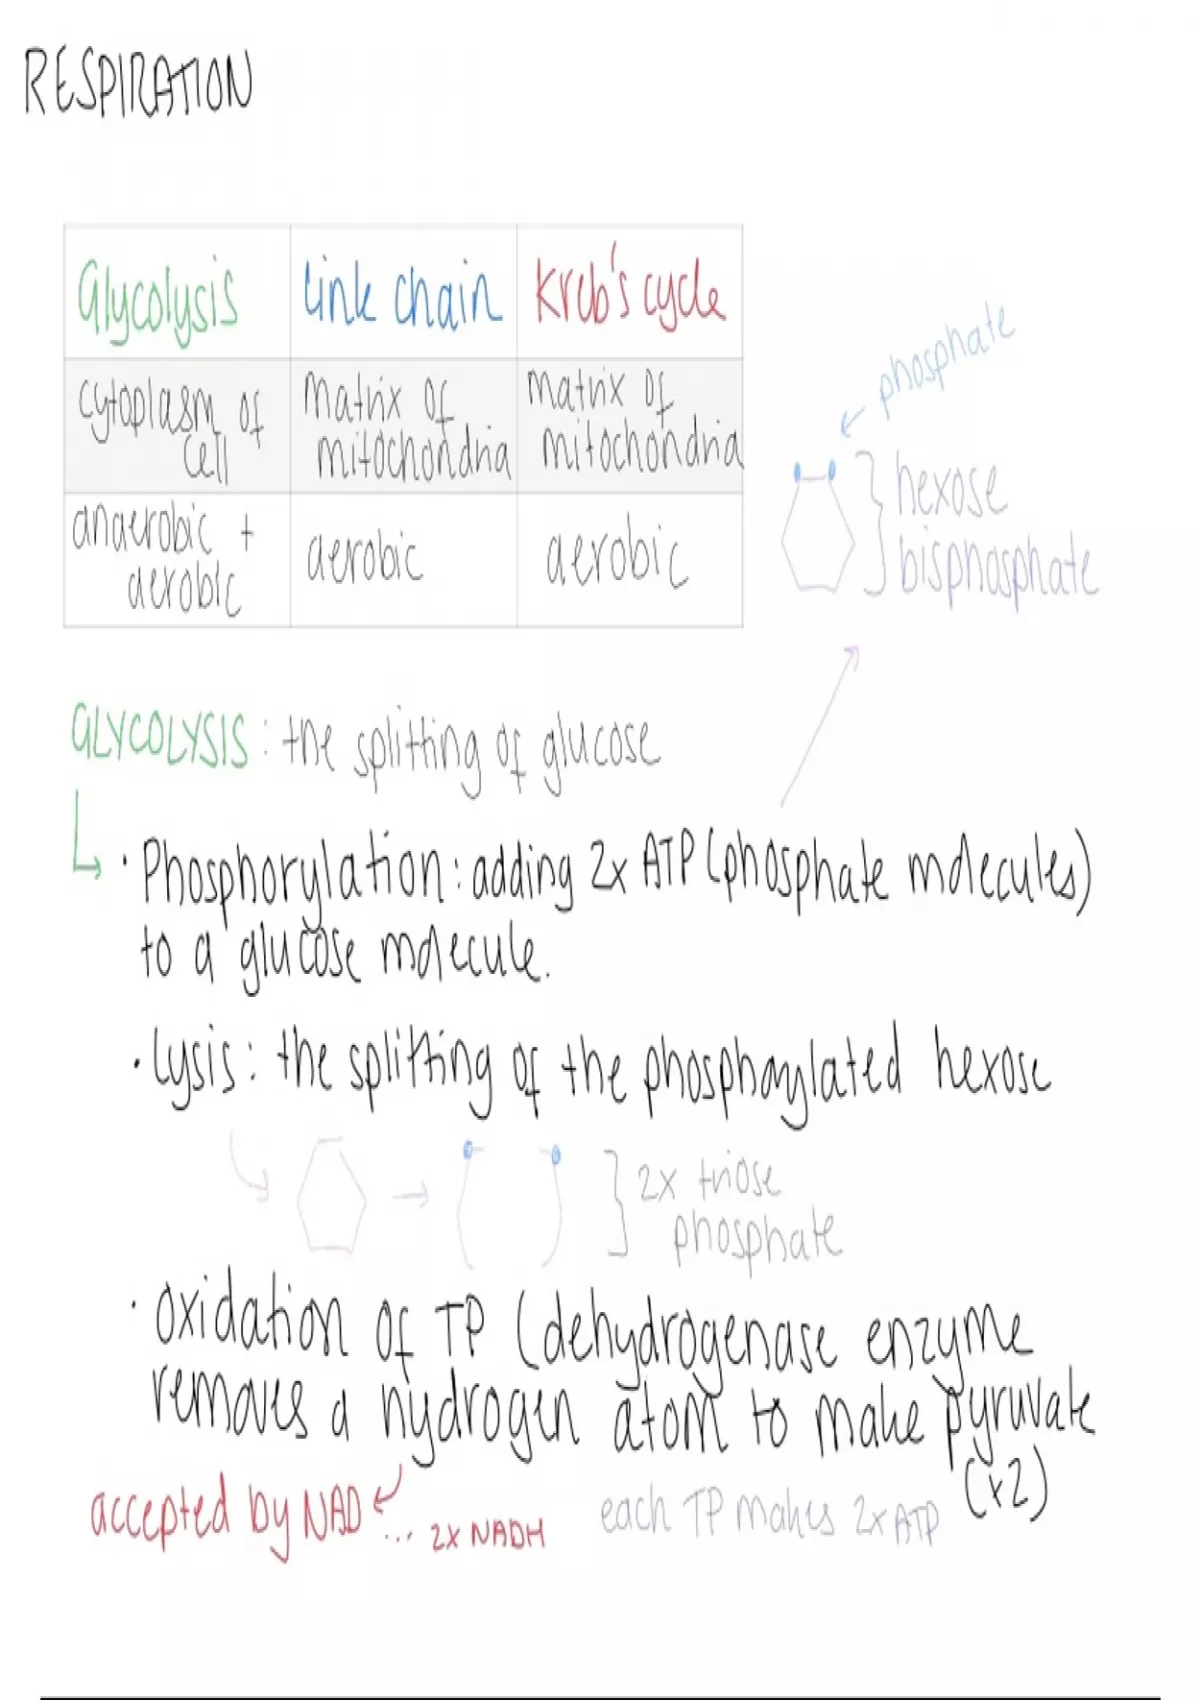 RESPIRATION
Glycolysis
Link chain
Kreb's cycle
cytoplasm of
cell
matrix of
mitochondria
matrix of
mitochondria
anaerobic +
aerobic
aerobic
aerobic
phosphate
hexose
bisphosphate
GLYCOLYSIS: the splitting of glucose
· Phosphorylation: adding 2x ATP (phosphate molecules)
to a glucose molecule.
· Lysis: the splitting of the phosphorylated hexose
2x triose
phosphate
· Oxidation of TP (dehydrogenase enzyme
removes a hydrogen atom to make pyruvate
(x2)
accepted by NAD ... 2x NADH
each TP makes 2x ATP